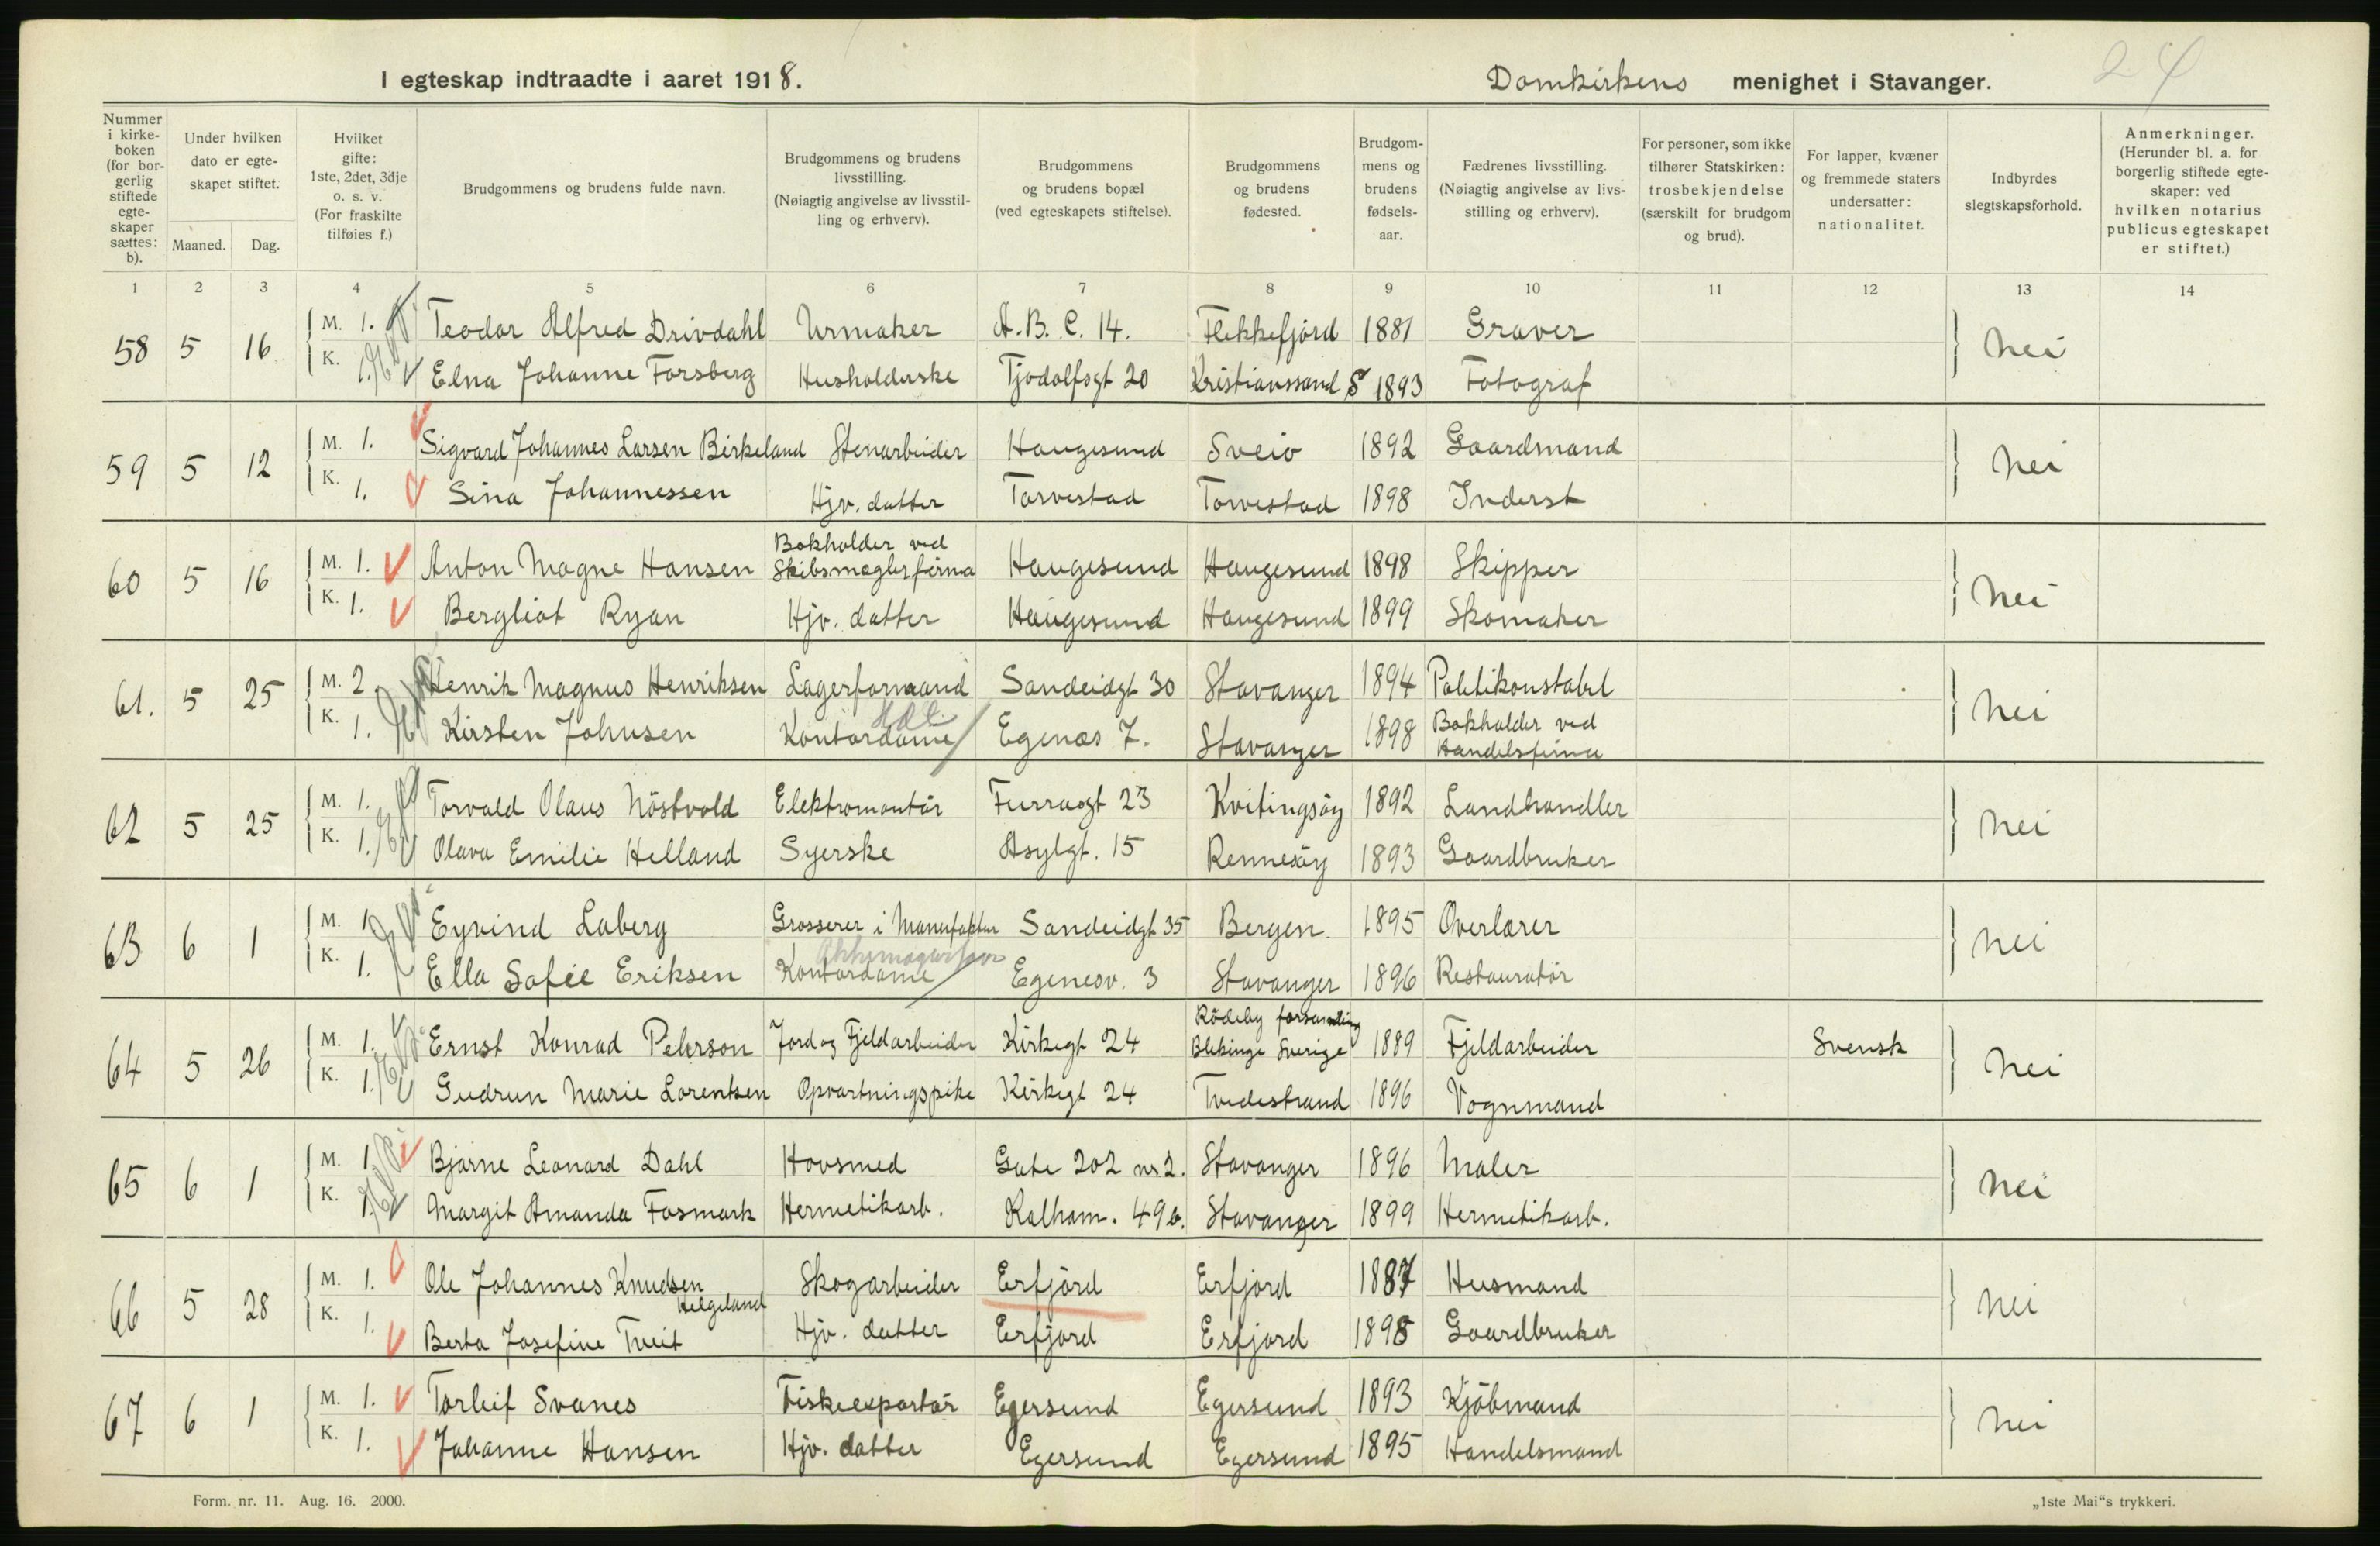 I egteskap indtraadte i aaret 1918. Domkirkens menighet i Stavanger. 24
Nummer i kirkeboken (for borgerlig stiftede egteskaper sættes: b).
Under hvilken dato er egteskapet stiftet.
Maaned. Dag.
Hvilket gifte: 1ste, 2det, 3dje o. s. v. (For fraskilte tilføies f.)
Brudgommens og brudens fulde navn.
Brudgommens og brudens livsstilling. (Nøiagtig angivelse av livsstilling og erhverv).
Brudgommens og brudens bopæl (ved egteskapets stiftelse).
Brudgommens og brudens fødested.
Brudgommens og brudens fødselsaar.
Fædrenes livsstilling. (Nøiagtig angivelse av livsstilling og erhverv).
For personer, som ikke tilhører Statskirken: trosbekjendelse (særskilt for brudgom og brud).
For lapper, kvæner og fremmede staters undersatter: nationalitet.
Indbyrdes slegtskapsforhold.
Anmerkninger. (Herunder bl. a. for borgerlig stiftede egteskaper: ved hvilken notarius publicus egteskapet er stiftet.)
1 2 3 4 5 6 7 8 9 10 11 12 13 14
58 5 16 M. 1. Teodor Alfred Drivdahl Urmaker A.B.C. 14. Flekkefjord 1881 Graver nei
K. 1. Elna Johanne Forsberg Husholderske Tjodolfsgt 20 Kristianssand S 1893 Fotograf
59 5 12 M. 1. Sigvard Johannes Larsen Birkeland Stenarbeider Haugesund Sveio 1892 Gaardmand nei
K. 1. Sina Johannessen Hjv. datter Torvestad Torvestad 1898 Inderst
60 5 16 M. 1. Anton Magne Hansen Bokholder ved Skibsmæglerfirma Haugesund Haugesund 1898 Skipper nei
K. 1. Bergliot Ryan Hjv. datter Haugesund Haugesund 1899 Skomaker
61. 5 25 M. 2 Henrik Magnus Henriksen Lagerformand Sandeidgt 30 Stavanger 1894 Politikonstabel nei
K. 1. Kirsten Johnsen Kontordame Egenæs 7. Stavanger 1898 Bokholder ved Handelsfirma
62 5 25 M. 1. Torvald Olaus Nöstvold Elektromontör Furrasgt 23 Kvitingsöy 1892 Landhandler nei
K. 1. Olava Emilie Helland Syerske Asylgt. 15 Rennesöy 1893 Gaardbruker
63 6 1 M. 1 Eyvind Laberg Grosserer i Manufaktur Sandeidgt 35 Bergen 1895 Overlærer nei
K. 1. Ella Sofie Eriksen Kontordame Egenesv. 3 Stavanger 1896 Restauratör
64 5 26 M. 1. Ernst Konrad Peterson Jord og Fjeldarbeider Kirkegt 24 Rödeby forsamling Blekinge Sverige 1889 Fjeldarbeider Svensk nei
K. 1. Gudrun Marie Lorentsen Opvartningspike Kirkegt 24 Tvedestrand 1896 Vognmand
65 6 1 M. 1 Bjarne Leonard Dahl Hovsmed Gate 202 nr 2. Stavanger 1896 Maler nei
K. 1. Margit Amanda Fosmark Hermetikarb. Kalham. 49b. Stavanger 1899 Hermetikarb.
66 5 28 M. 1. Ole Johannes Knudsen Helgeland Skogarbeider Erfjord Erfjord 1887 Husmand nei
K. 1. Berta Josefine Tveit Hjv. datter Erfjord Erfjord 1895 Gaardbruker
67 6 1 M. 1. Torleif Svanes Fiskeexportör Egersund Egersund 1893 Kjöbmand nei
K. 1. Johanne Hansen Hjv. datter Egersund Egersund 1895 Handelsmand
Form. nr. 11. Aug. 16. 2000. „1ste Mai“s trykkeri.